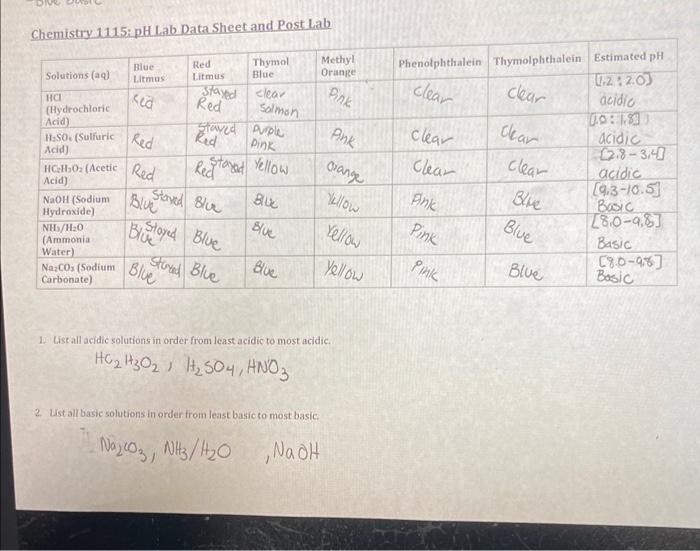 Chemistry 1115: pH Lab Data Sheet and Post Lab
Solutions (aq) Blue Litmus Red Litmus Thymol Blue Methyl Orange Phenolphthalein Thymolphthalein Estimated pH
HCl (Hydrochloric Acid) Red Stayed Red clear Salmon Pink Clear Clear [1.2 : 2.0] acidic
H₂SO₄ (Sulfuric Acid) Red Stayed Red Purple Pink Pink Clear Clear acidic
HC₂H₃O₂ (Acetic Acid) Red Red Stayed Yellow Orange Clear Clear [2.8-3.4] acidic
NaOH (Sodium Hydroxide) Blue Stayed Blue Blue Yellow Pink Blue [9.3-10.5] Basic
NH₃/H₂O (Ammonia Water) Blue Stayed Blue Blue Yellow Pink Blue [8.0-9.8] Basic
Na₂CO₃ (Sodium Carbonate) Blue Stayed Blue Blue Yellow Pink Blue [8.0-9.8] Basic
1. List all acidic solutions in order from least acidic to most acidic.
HC₂H₃O₂, H₂SO₄, HNO₃
2. List all basic solutions in order from least basic to most basic.
Na₂CO₃, NH₃/H₂O, NaOH